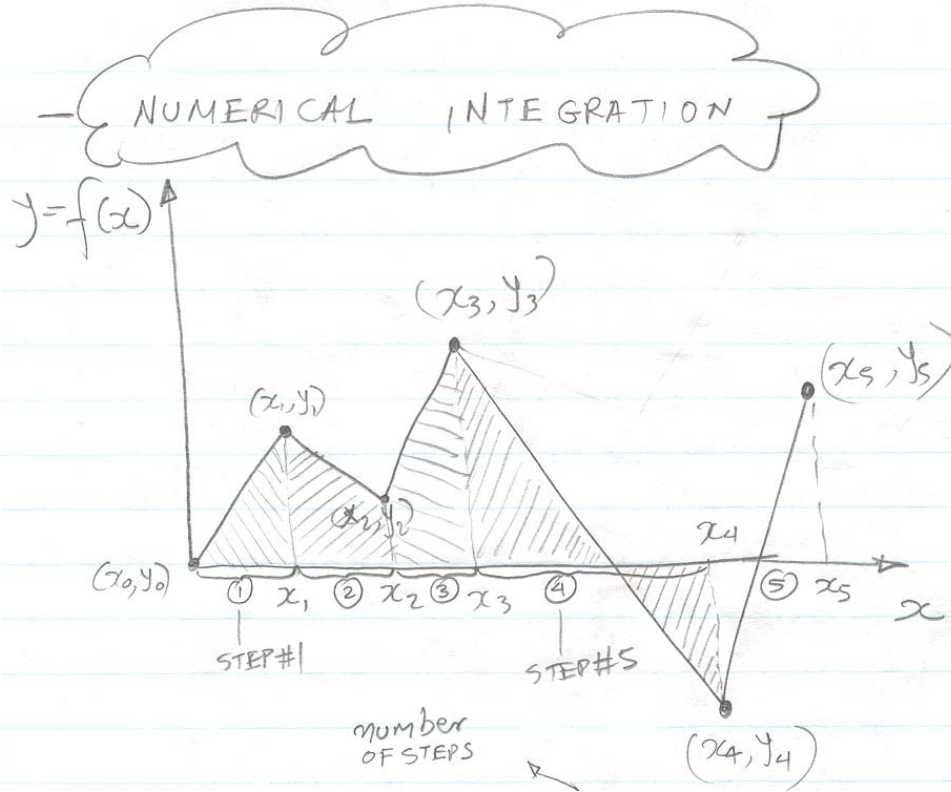 NUMERICAL INTEGRATION
y=f(x)
(x3, y3)
(x5, y5)
(x1, y1)
(x2, y2)
x4
(x0, y0)
① x1 ② x2 ③ x3 ④ ⑤ x5
x
STEP#1
STEP#5
number
OF STEPS
(x4, y4)